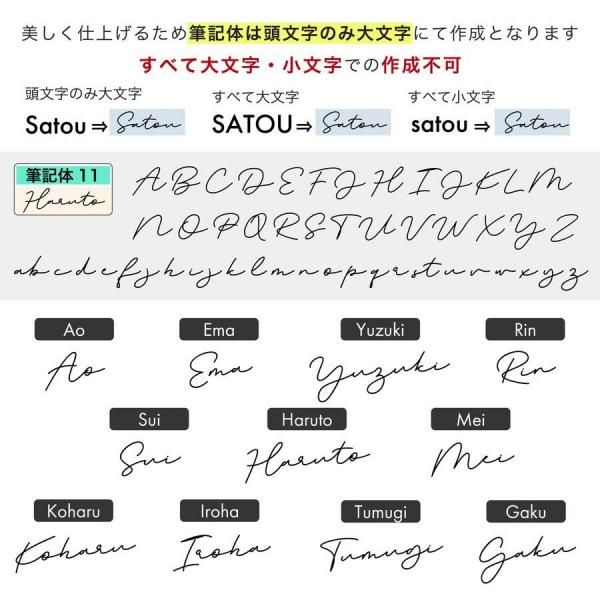 美しく仕上げるため筆記体は頭文字のみ大文字にて作成となります
すべて大文字・小文字での作成不可
頭文字のみ大文字 すべて大文字 すべて小文字
Satou ⇒ Satou SATOU ⇒ Satou satou ⇒ Satou
筆記体 11
Haruto
A B C D E F J H I J K L M
N O P Q R S T U V W X Y Z
a b c d e f j h i j k l m n o p q r s t u v w x y z
Ao Ema Yuzuki Rin
Ao Ema Yuzuki Rin
Sui Haruto Mei
Sui Haruto Mei
Koharu Iroha Tumugi Gaku
Koharu Iroha Tumugi Gaku